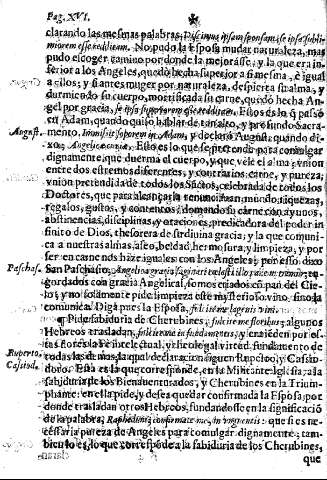 Pag. XVI.
clarando las mesmas palabras,
No pudo la Esposa mudar naturaleza, mas
pudo escoger camino por donde la mejorasse, y la que era in-
ferior a los Angeles, quedò hecha superior a si mesma, è igual
a ellos; y si antes muger por naturaleza, despierta su alma, y
dormido su cuerpo, mortificada su carne, quedò hecha An-
gel por gracia, Esto es lo q̃ passò
en Adam, quando quiso hablar de tan alto, y profundo Sacra-
mento, Immisit soporem in Adam, y declarò August. quando di-
xo: Angelica gratia. Esto es lo que se pretende para comulgar
dignamente, que duerma el cuerpo, y que vele el alma: vnion
entre dos estremos diferentes, y contrarios, carne, y pureza;
vnion pretendida de todos los Santos, celebrada de todos los
Doctores, que para alcançarla renunciavan mundo, riquezas,
regalos, gustos, y contentos: domando su carne con ayunos,
abstinencias, disciplinas, y oraciones, predicadora del poder in-
finito de Dios, thesorera de su divina gracia; y la que comuni-
ca a nuestras almas, aseo, beldad, hermosura, y limpieza, y por
ser en carne nos haze iguales con los Angeles; por esso dixo
San Paschasio,
gordados con gracia Angelical, somos cujados en pan del Cie-
lo; y no solamente pide limpieza este mysterioso vino, sino la
comunica. Diga pues la Esposa,
¶ Pide sabiduria de Cherubines, algunos
Hebreos trasladan, y entienden por es-
tas flores la fee intelectual, y theologal virtud, fundamento de
todas las demas, la qual declaracion siguen Ruperto, y Casio-
doro. Esta es la que corresponde, en la Militante Iglesia, a la
sabiduria de los Bienaventurados, y Cherubines en la Trium-
phante: en ella pide, y desea quedar confirmada la Esposa, por
donde trasladan otros Hebreos, fundandose en la significaciõ
de la palabra, que si es ne-
cessaria pureza de Angeles para comulgar dignamente; tam-
bien lo es, lo que corresponde a la sabiduria de los Cherubines,
que
August.
Paschas.
Ruperto,
Casiod.